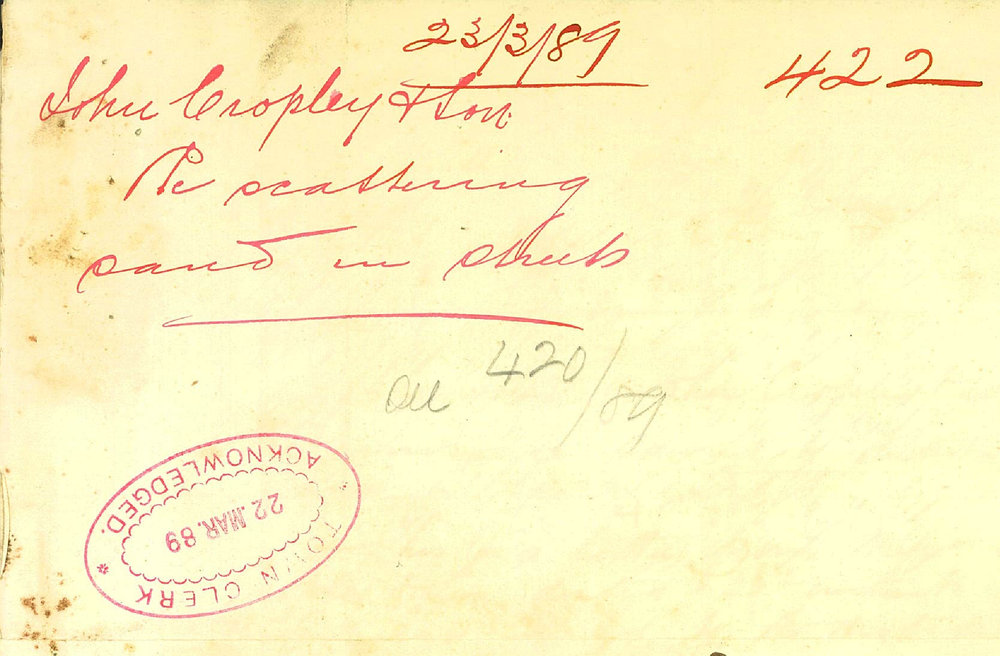 23/3/89
422
John Cropley & Son
Re scattering
sand in streets
420/89
TOWN CLERK
22. MAR. 89
ACKNOWLEDGED.